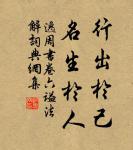 行出於己
名生於人
逸周書卷六謚法
解詞典網集